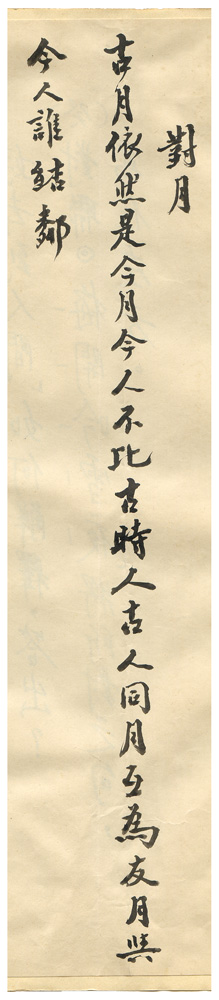 對月
古月依然是今月今人不比古時人古人同月互為友月與
今人誰結鄰